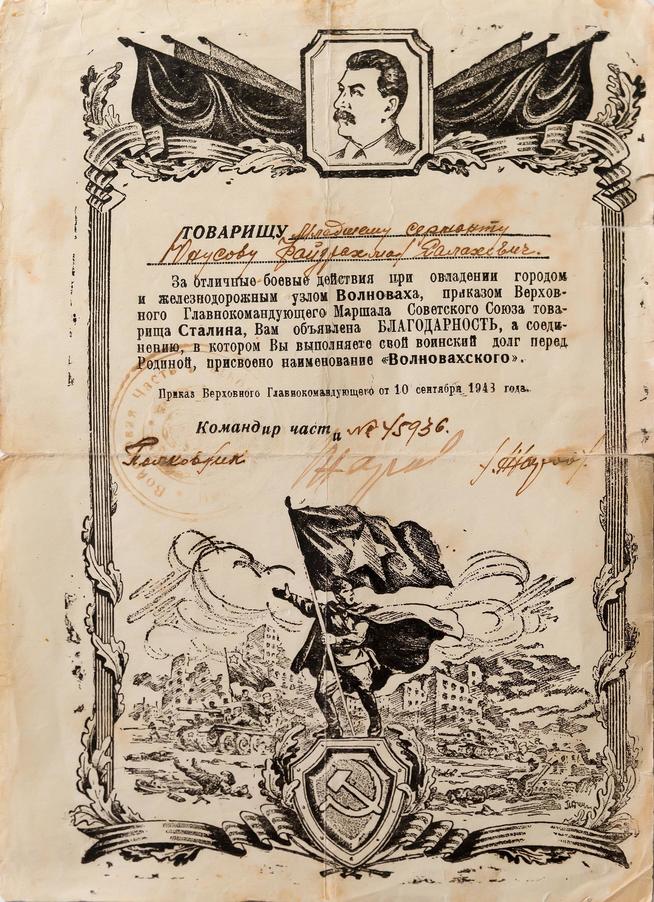 ТОВАРИЩУ Младшему сержанту
Юнусову Файдрахман Салахевич.
За отличные боевые действия при овладении городом
и железнодорожным узлом Волноваха, приказом Верхов-
ного Главнокомандующего Маршала Советского Союза това-
рища Сталина, Вам объявлена БЛАГОДАРНОСТЬ, а соеди-
нению, в котором Вы выполняете свой воинский долг перед
Родиной, присвоено наименование «Волновахского».
Приказ Верховного Главнокомандующего от 10 сентября 1943 года.
Командир части № 45936.
Полковник